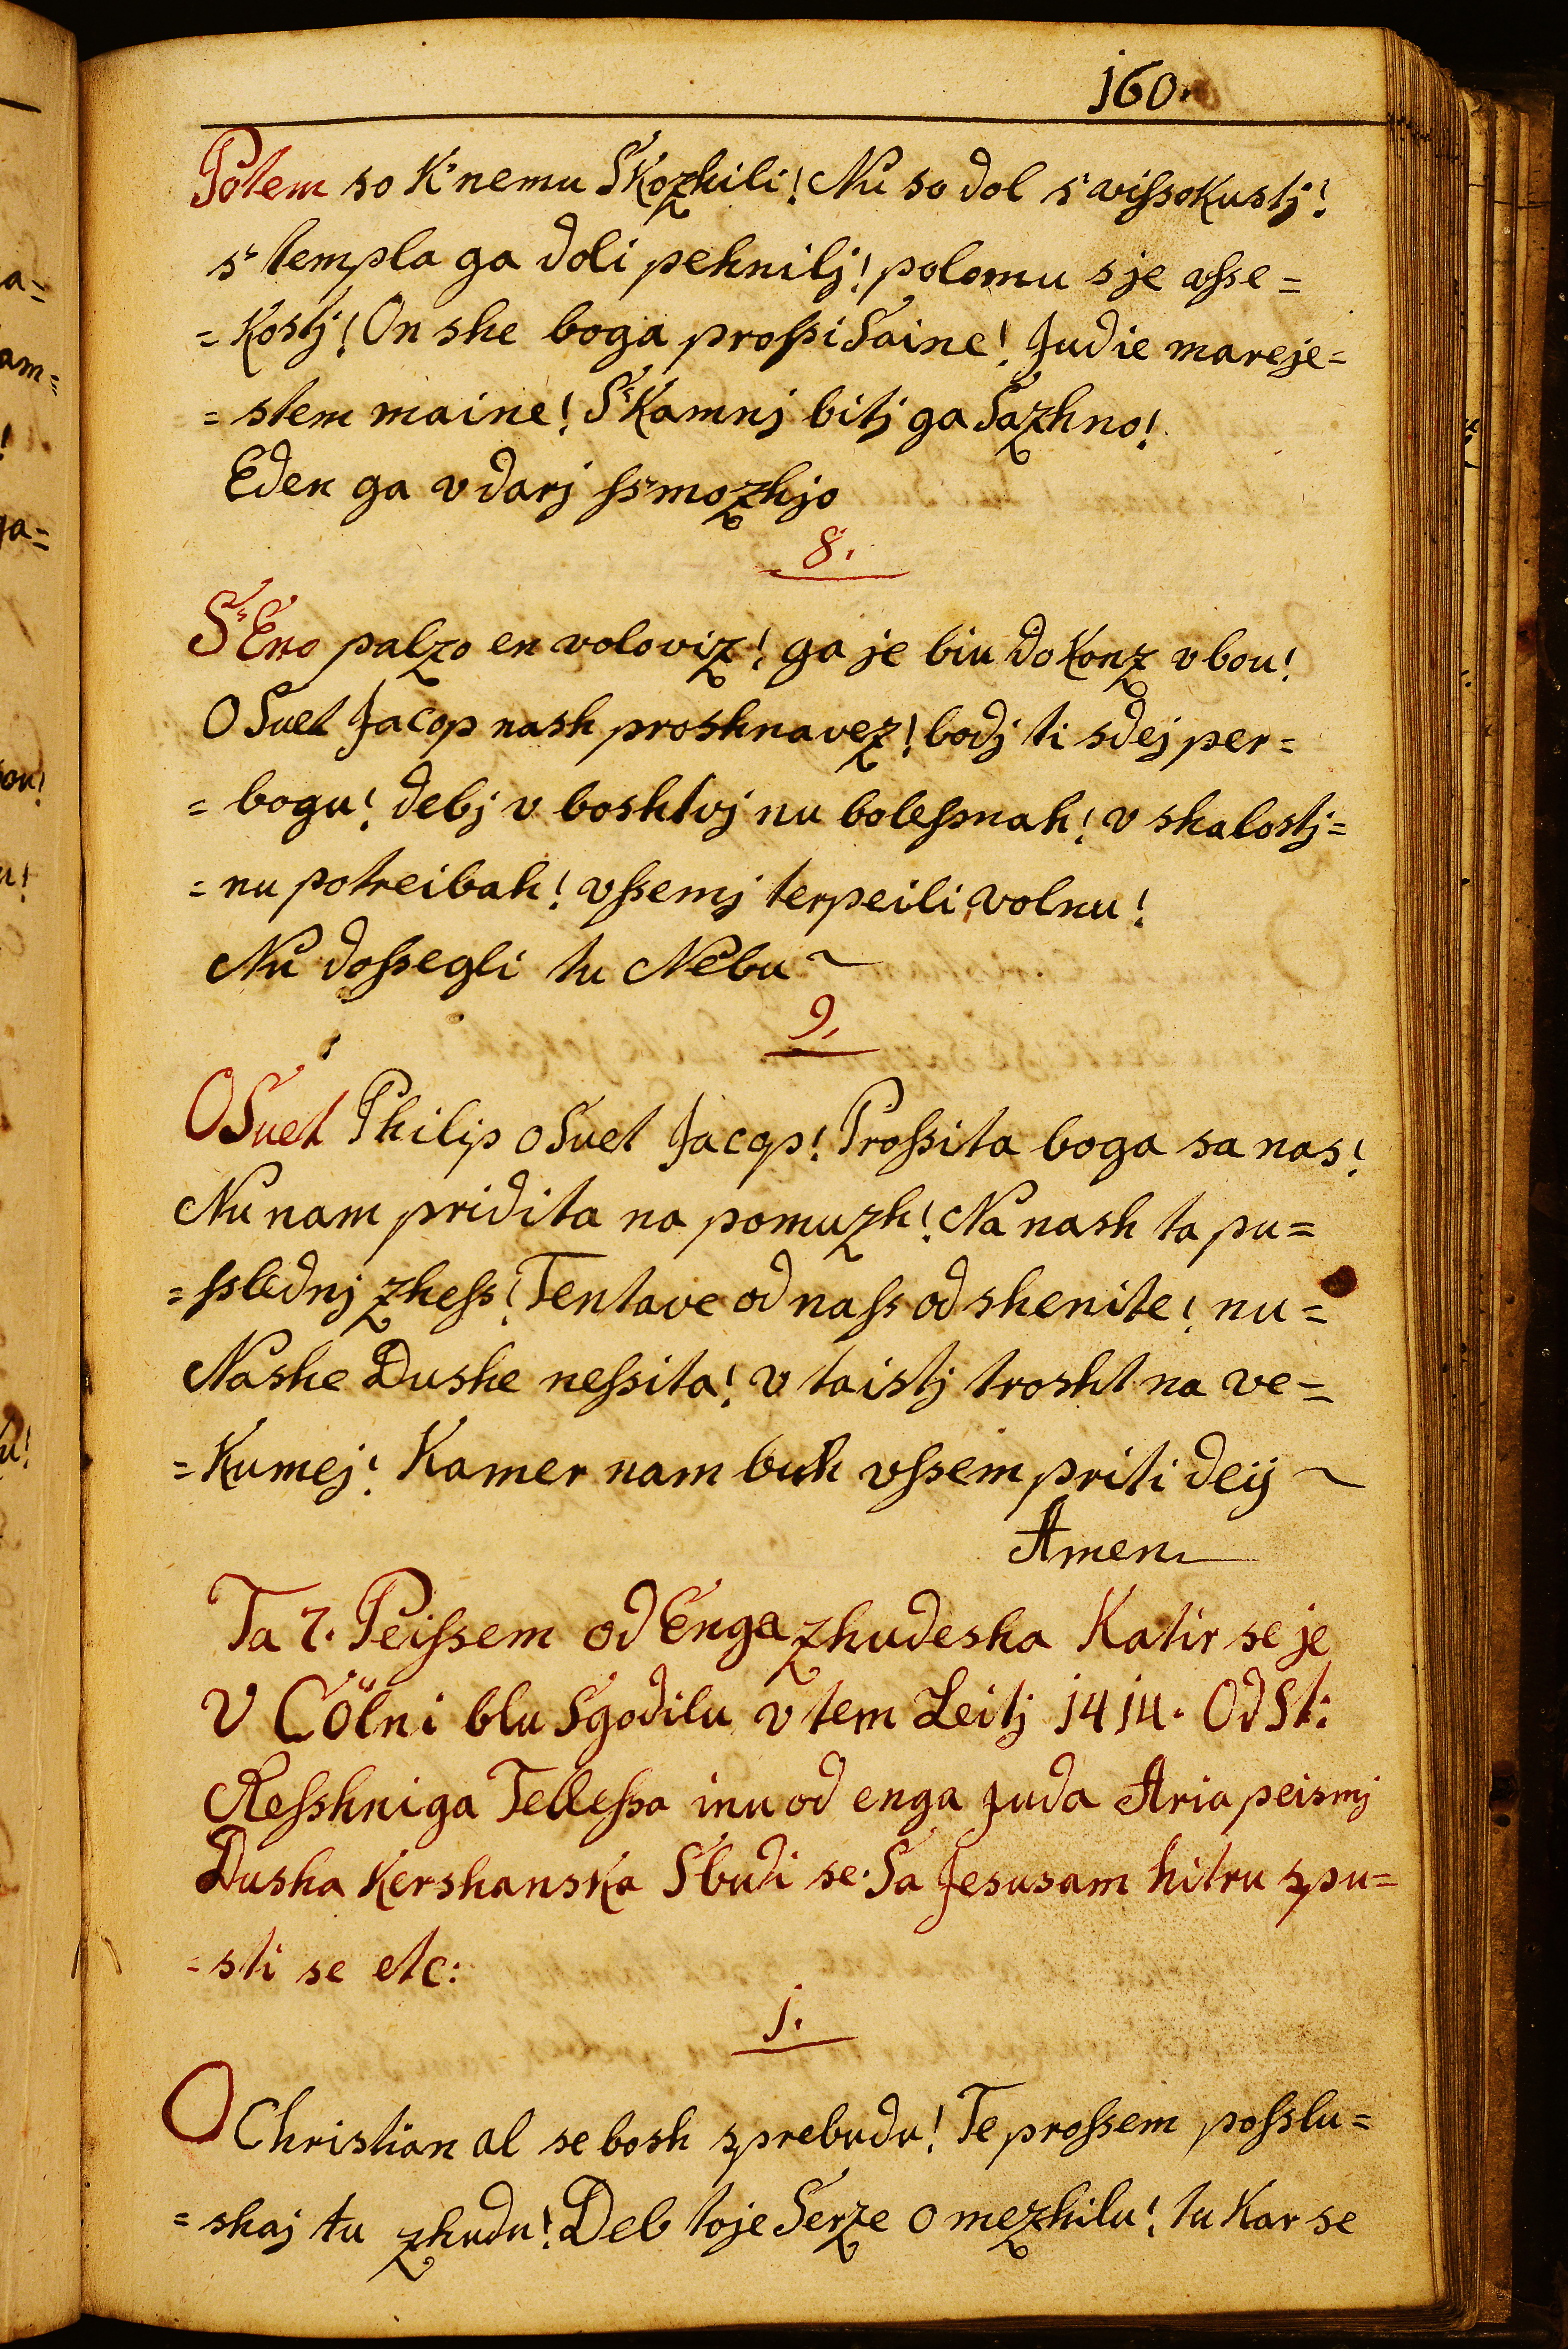 160.
Potem so K'nemu Skozhili! Nu so dol s' vissokustj!
s' templa ga doli pehnilj! polomu sje vsse=
=kostj! On she boga prossi Saine! Judie mareje=
=stem maine! S'Kamnj bitj ga Sazhno!
Eden ga vdarj ss'mozhjo
8.
S'Eno palzo en voloviz! ga je biu do Konz vbou!
O Suet Jacop nash proshnavez! bodj ti sdej per=
=bogu! debj v boshtvj nu bolessnah! v shalostj=
=nu potreibah! vssemj terpeili volnu!
Nu dossegli tu Nebu
9.
O Suet Philip o Suet Jacop! Prossita boga sa nas!
Nu nam pridita na pomuzh! Na nash ta pu=
=sslednj zhess! Tentave od nass odshenite! nu=
Nashe Dushe nessita! v taistj trosht na ve=
=Kumej! Kamer nam buh vssem priti deij
Amen
Ta 7. Peissem od Enga zhudesha Katir se je
V Cölni blu Sgodilu v tem Leitj 1414. Od St:
Resshniga Tellessa inu od enga Juda Aria peismj
Dusha Kershanska Sbudi se. Sa Jesusam hitru spu=
=sti se etc:
1.
O Christian al se bosh sprebudu! Te prossem posslu=
=shaj tu zhudu! Deb toje Serze omezhilu! tu Kar se
a=
am=
!
ja=
ou!
u!
u!